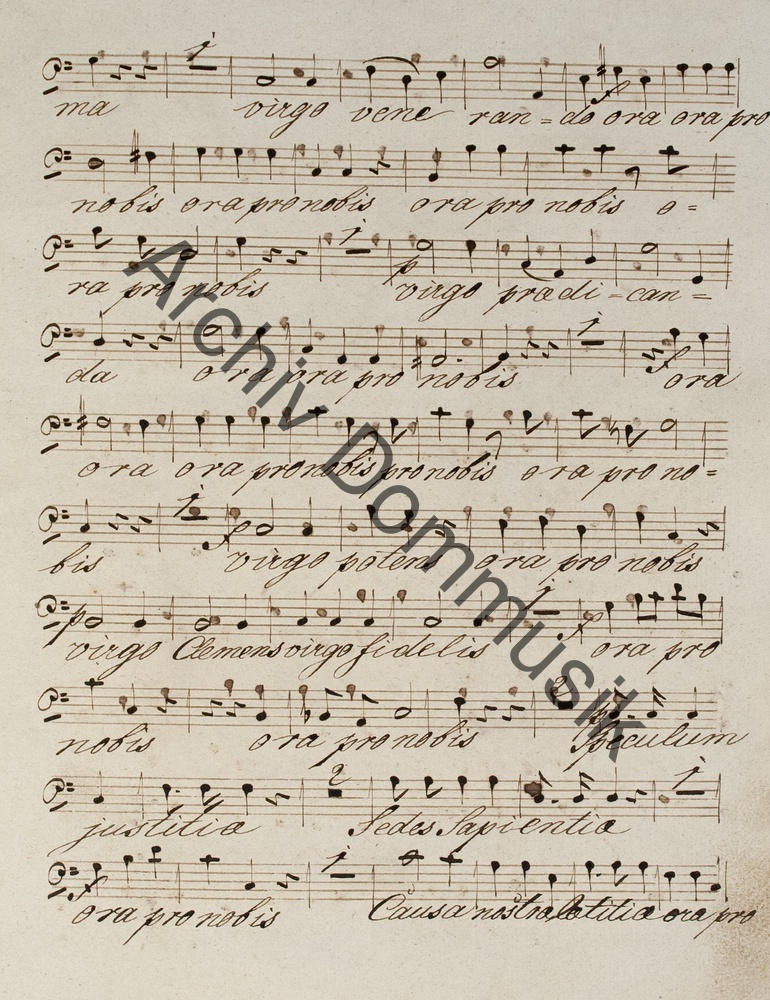 1
ma virgo vene ran = do ora ora pro
nobis ora pro nobis ora pro nobis o =
1
ra pro nobis virgo prædi - can =
1
da ora ora pro nobis ora
ora ora pro nobis pro nobis ora pro no =
1
bis virgo potens ora pro nobis
1
virgo Clemens virgo fidelis ora pro
2
nobis ora pro nobis Speculum
2 1
justitiæ Sedes Sapientiæ
1
ora pro nobis Causa nostræ lætitiæ ora pro
Archiv Dommusik